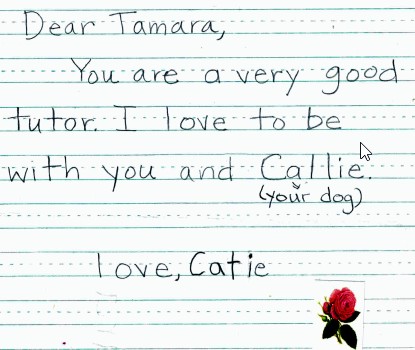 Dear Tamara,
You are a very good
tutor. I love to be
with you and Callie.
(your dog)
love, Catie